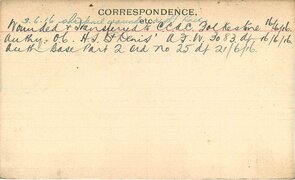 CORRESPONDENCE.
etc.
3.6.16 Shrapnel wounds
Wounded & transferred to C.C.A.C. Folkestone 16/6/16.
Authy. O.C. H.S. St Denis' A.F.W. 3083 dt 16/6/16.
Auth. Base Part 2 Ord no 25 dt 21/6/16.